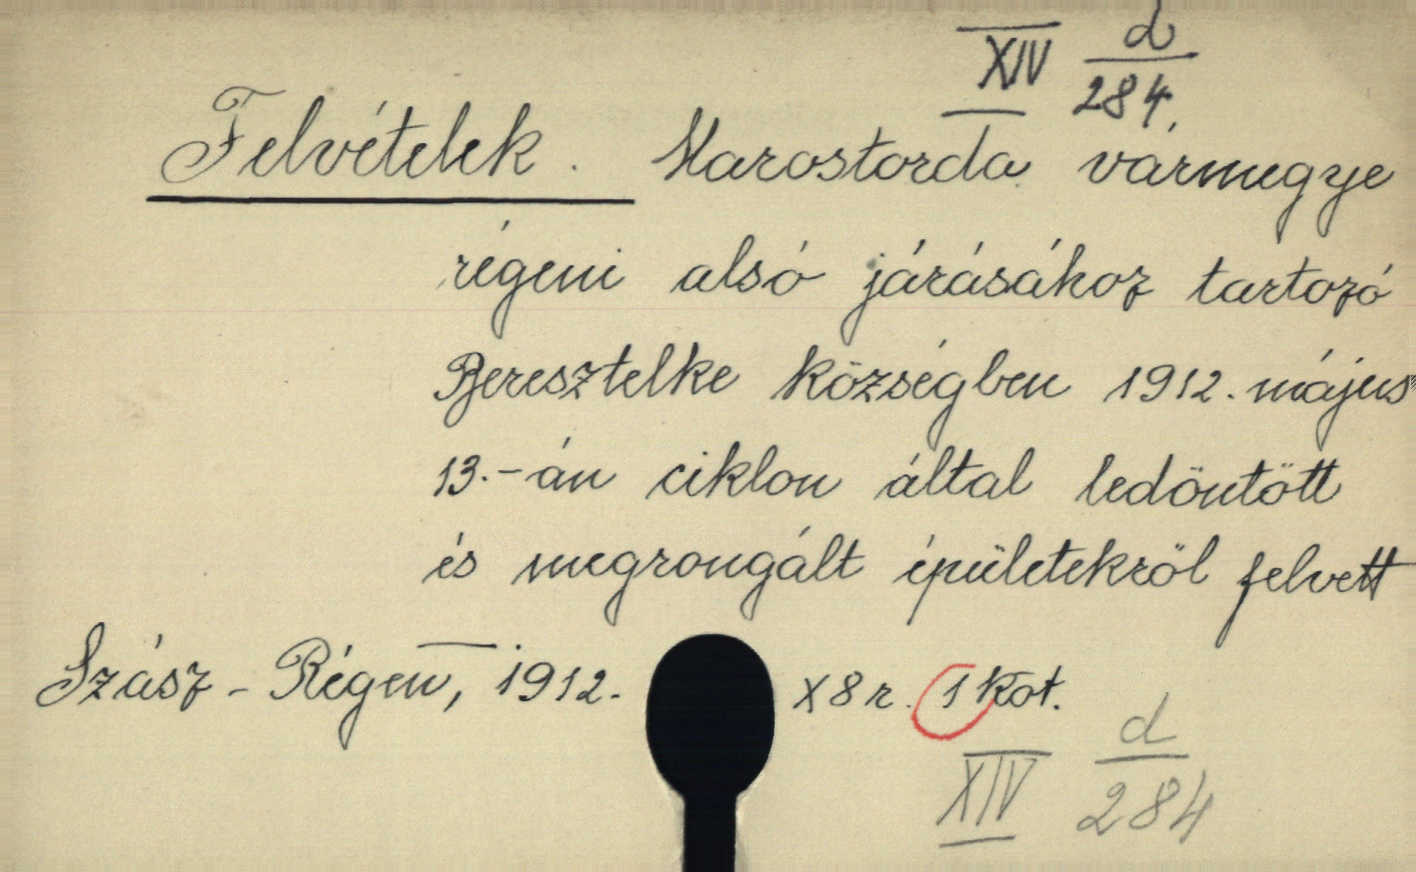 XIV d
284.
Felvételek. Marostorda vármegye
régeni alsó járásához tartozó
Beresztelke községben 1912. május
13.-án ciklon által ledöntött
és megrongált épületekről felvett
Szász-Régen, 1912. X8r. 1 köt.
XIV d
284